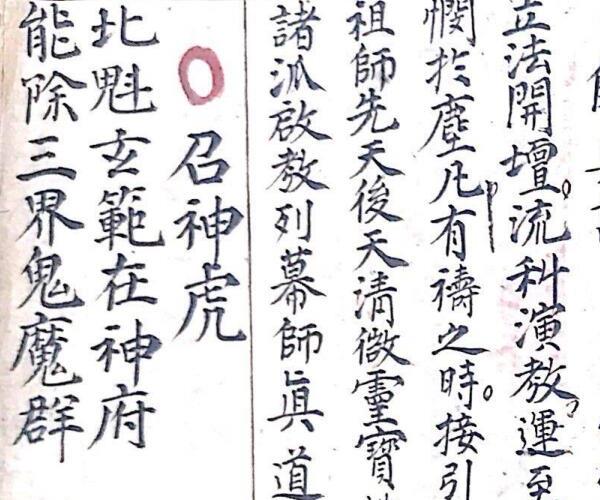 立法開壇。流科演教。運至
憫於塵凡有禱之時。接引
祖師先天後天清微靈寶
諸派啟教列幕師真道
○召神虎
北魁玄範在神府
能除三界鬼魔群